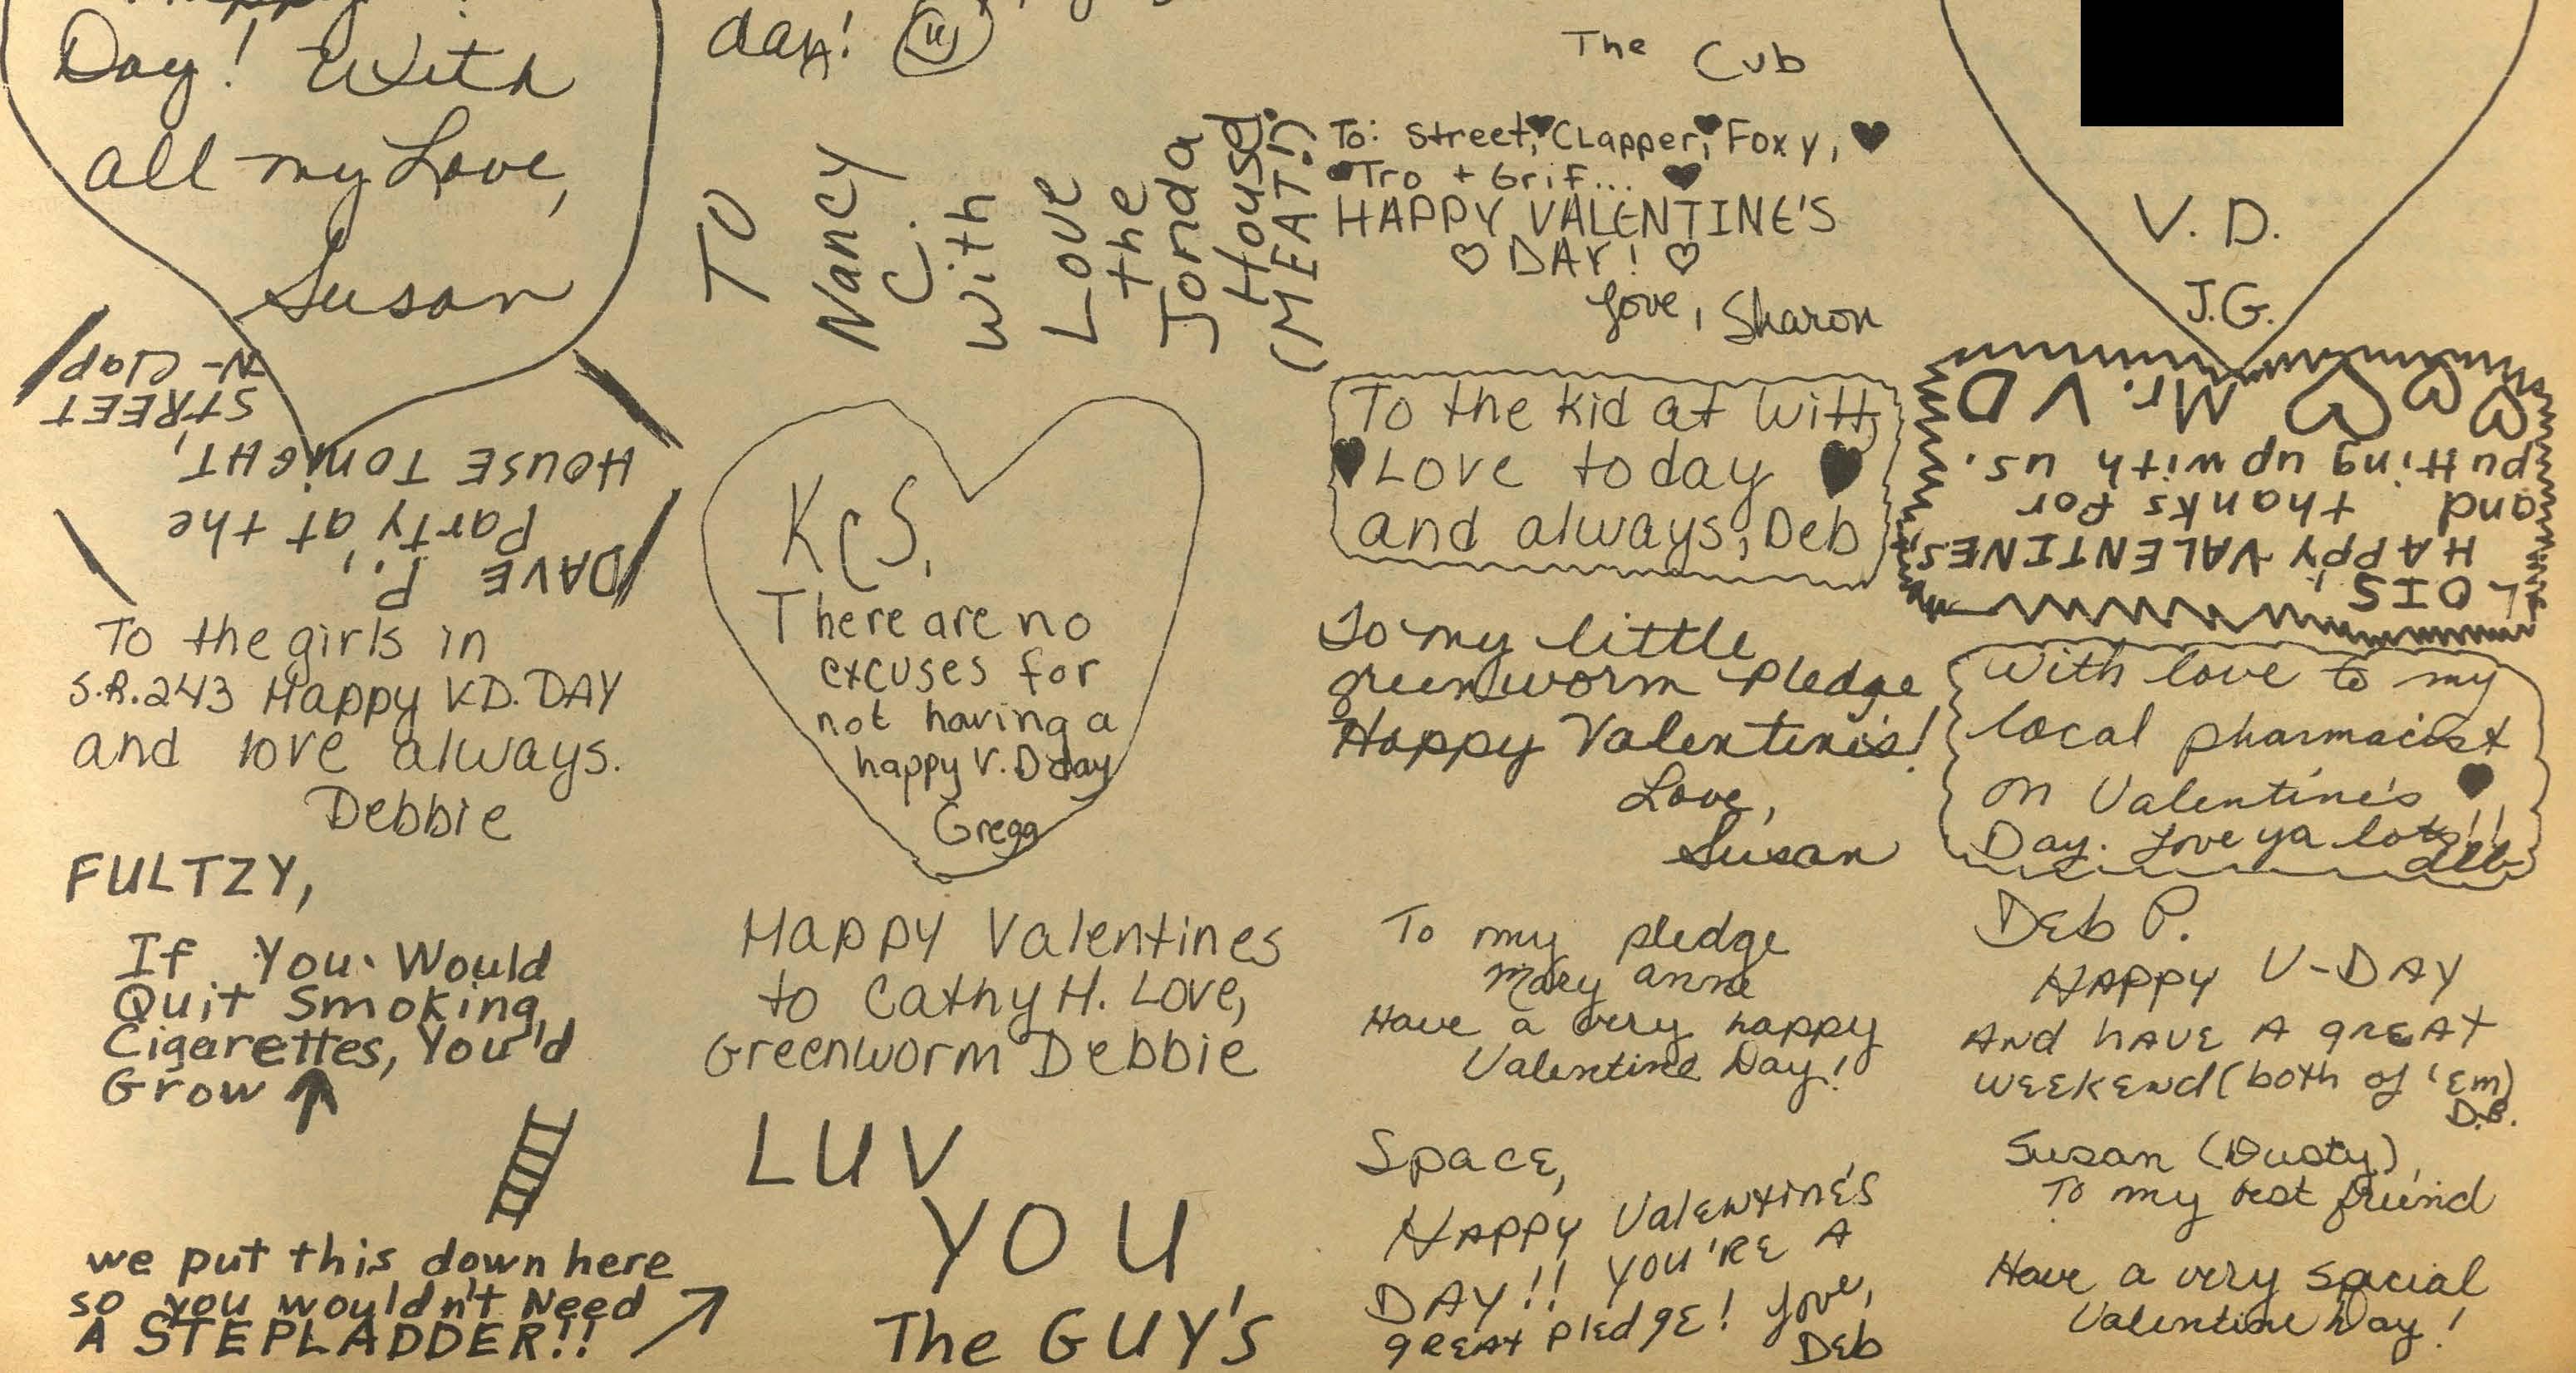 Day! With
all my Love,
Susan
DAVE P.,
Party at the
HOUSE TONIGHT,
STREET
-N- Clap
To the girls in
S.R.243 Happy V.D. DAY
and love always.
Debbie
FULTZY,
If You Would
Quit Smoking
Cigarettes, You'd
Grow
we put this down here
so you wouldn't Need
A STEPLADDER!!
day!
TO
Nancy
C.
With
Love
the
Jonda
House
(MEAT!)
KCS,
There are no
excuses for
not having a
happy V.D day
Gregg
Happy Valentines
to Cathy H. Love,
Greenworm Debbie
LUV
YOU
The GUY'S
The Cub
To: Street, Clapper, Foxy,
Tro + Grif...
HAPPY VALENTINE'S
DAY!
Love, Sharon
To the kid at Witt,
Love today
and always, Deb
To my little
greenworm Pledge
Happy Valentine's!
Love,
Susan
To my pledge
Mary anne
Have a very happy
Valentine Day!
Space,
Happy Valentine's
DAY!! YOU'RE A
great pledge! Love,
Deb
V. D.
J.G.
LOIS,
HAPPY VALENTINES
and thanks for
putting up with us.
Mr. V D
With love to my
local pharmacist
on Valentine's
Day. Love ya lots!!
deb
Deb P.
HAPPY V-DAY
And have a great
weekend (both of 'em)
D.B.
Susan (Dusty),
To my best friend
Have a very special
Valentine Day!